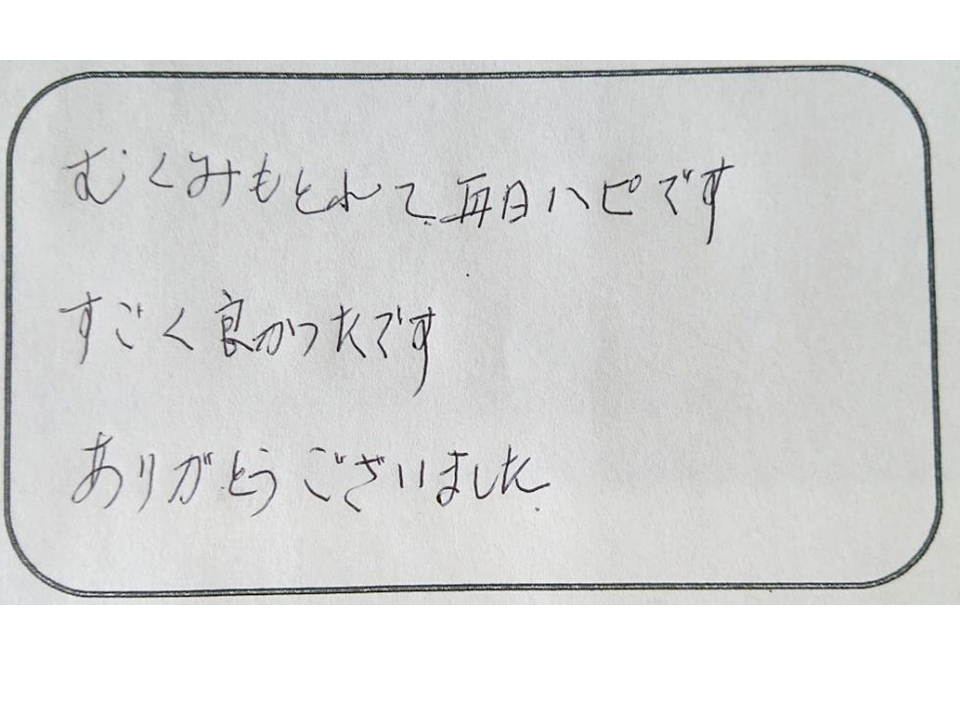 むくみもとれて毎日ハピです
すごく良かったです
ありがとうございました